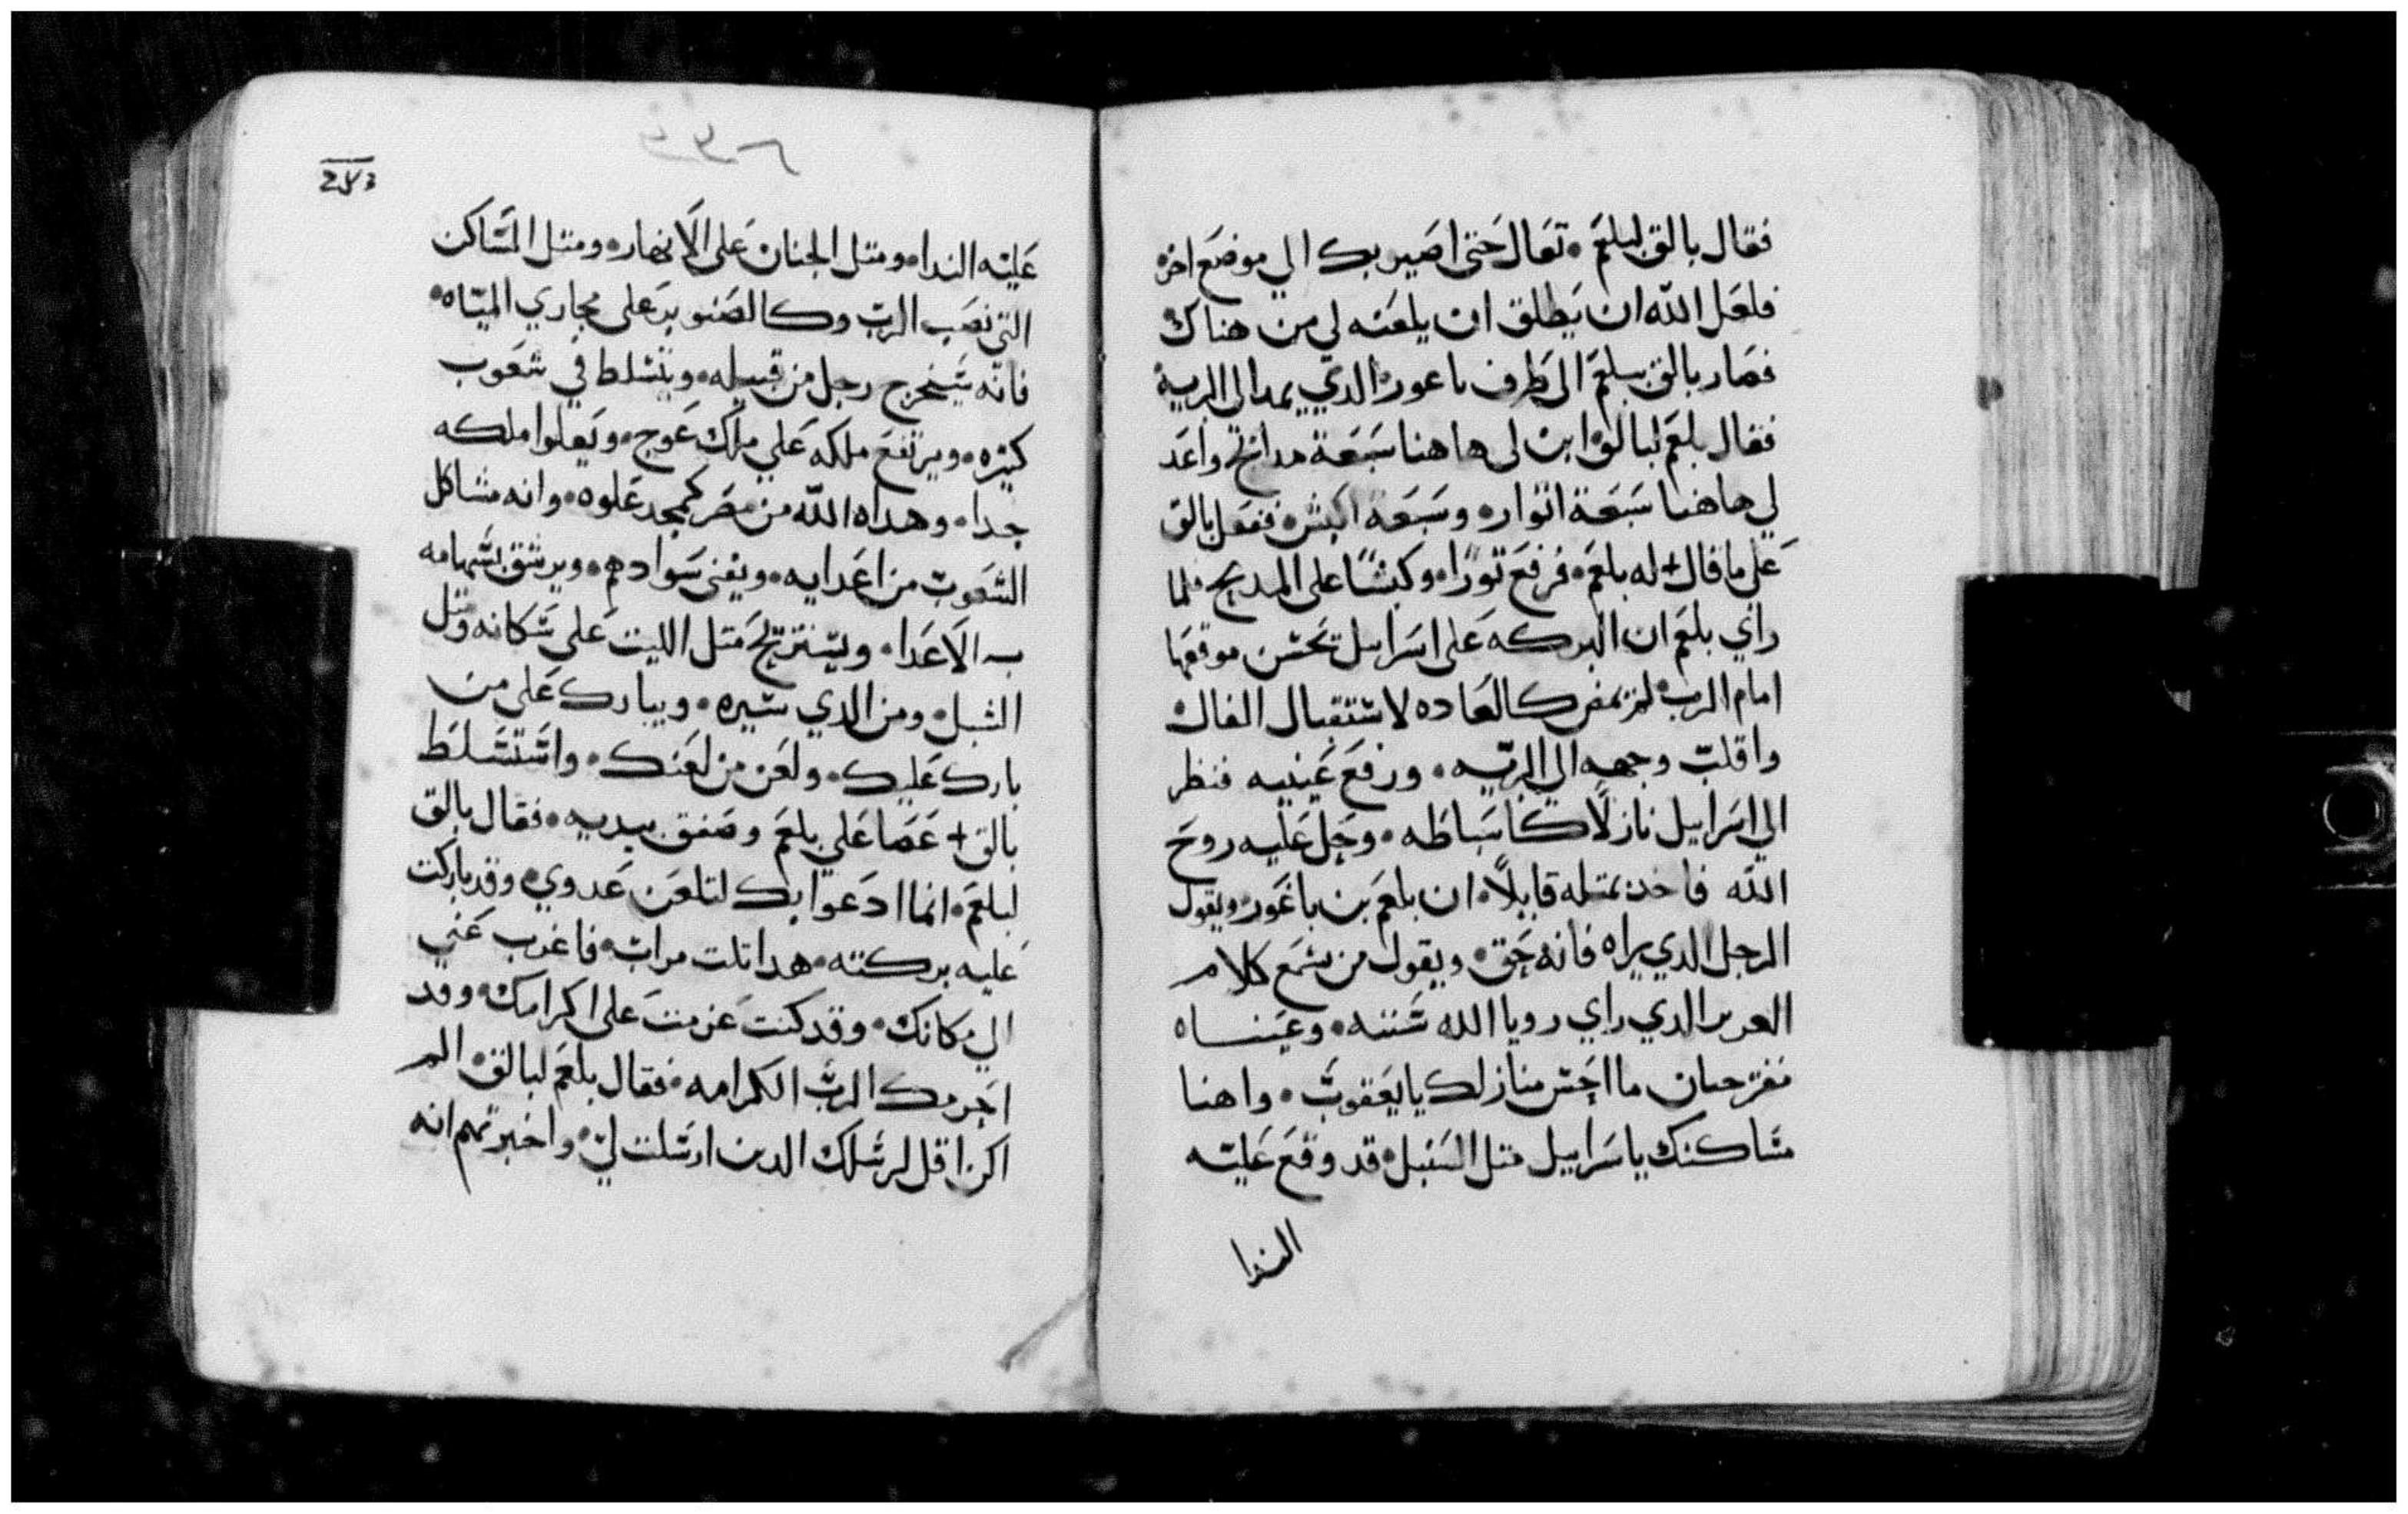 فقال بالق لبلعم • تعال حتى اصير بك الي موضع اخر •
فلعل الله ان يطلق ان يلعنه لي من هناك
فصار بالق ببلعم الى طرف باعور • الدي يمد الى البرية
فقال بلعم لبالق ابن لى هاهنا سبعة مدابح واعد
لي هاهنا سبعة اتوار • وسبعة اكبش • ففعل بالق
على ما قال + له بلعم • فرفع تورًا • وكبشًا على المدبح فلما
راي بلعم ان البركه على اسرابيل تحسن موقعها
امام الرب • لم يمض كالعاده لاستقبال الفال
واقلب وجهه الى البريه • ورفع عينيه فنظر
الي اسرابيل نازلًا كاسباطه • وحل عليه روح
الله فاخد بمتله قايلًا • ان بلعم بن باعور • ويقول
الرجل الدي يراه فانه حق • ويقول من يسمع كلام
العزيز الدي راي رويا الله سنته • وعيناه
مفتوحتان ما احسن منازلك يا يعقوب • واهنا
مساكنك ياسرابيل متل السنبل • قد وقع عليه
الندا
عليه الندا • ومتل الجنان على الانهار • ومتل المساكن
التى نصب الرب وكالصنوبر على مجاري المياه •
فانه سيخرج رجل من قبيله • ويتسلط في شعوب
كتيره • ويرتفع ملكه علي ملك عوج • ويعلوا ملكه
جدا • وهداه الله من مصر كمجد علوه • وانه مشاكل
الشعوب من اعدايه • ويفنى سوادهم • ويرشق بسهامه
به الاعدا • ويستريح متل الليت على سكانه ومتل
الشبل • ومن الدي يتيره • ويبارك على من
بارك عليك • ولعن من لعنك • واستسلط
بالق + غضبا علي بلعم وصفق بيديه • فقال بالق
لبلعم • انما ادعوا بك لتلعن عدوي • وقد باركت
عليه بركته • هدا تلت مرات • فاغرب عني
الي مكانك • وقد كنت عزمت على اكرامك • وقد
احرمك الرب الكرامه • فقال بلعم لبالق • الم
اكن اقل لرسلك الدين ارسلت لي • واخبرتهم انه